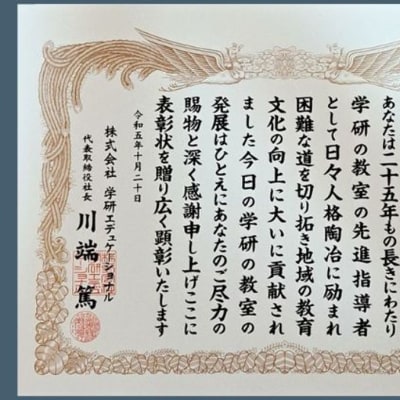 あなたは二十五年もの長きにわたり
学研の教室の先進指導者
として日々人格陶冶に励まれ
困難な道を切り拓き地域の教育
文化の向上に大いに貢献され
ました今日の学研の教室の
発展はひとえにあなたのご尽力の
賜物と深く感謝申し上げここに
表彰状を贈り広く顕彰いたします
令和五年十月二十日
株式会社 学研エデュケーショナル
代表取締役社長 川端 篤